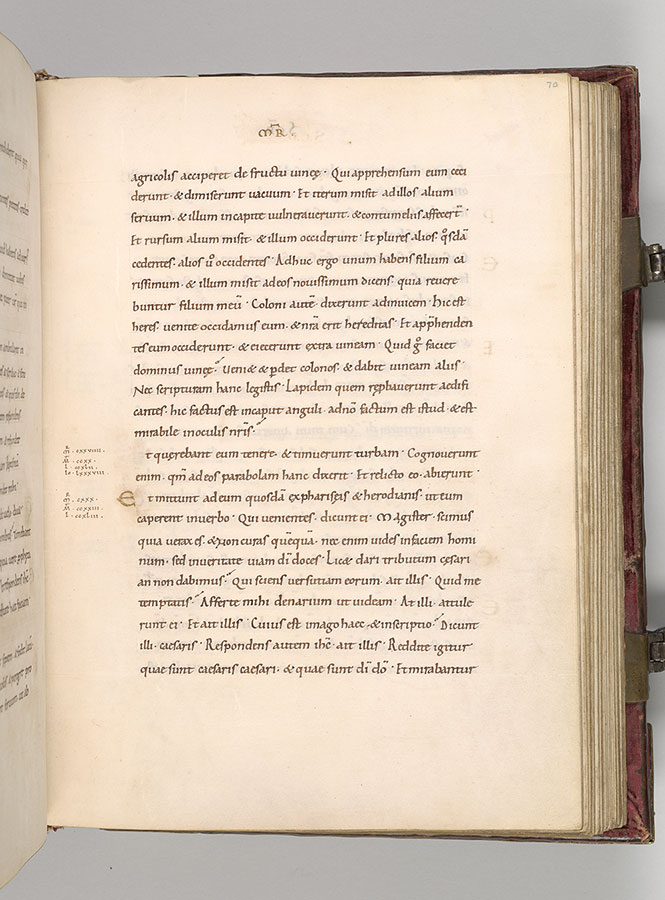 70
MR̄
agricolis acciperet de fructu uinęe · Qui apprehensum eum ceci
derunt · & dimiserunt uacuum · Et iterum misit ad illos alium
seruum · & illum in capite uulnerauerunt · & contumeliis affecer̄t ·
Et rursum alium misit · & illum occiderunt · Et plures alios · qͦsdā
cedentes · alios uͦ occidentes · Adhuc ergo unum habens filium ca
rissimum · & illum misit ad eos nouissimum dicens · quia reuere
buntur filium meū · Coloni autē dixerunt ad inuicem · hic est
heres · uenite occidamus eum · & nr̄a erit hereditas · Et app̄henden
tes eum occiderunt · & eiecerunt extra uineam · Quid gͦ faciet
dominus uinęe · Veni& & ꝑdet colonos · & dabit uineam aliis ·
Nec scripturam hanc legistis · Lapidem quem reꝓbauerunt aedifi
cantes · hic factus est in caput anguli · a dn̄o factum est istud · & est
mirabile in oculis nr̄is ·
t querebant eum tenere · & timuerunt turbam · Cognouerunt
enim · qm̄ ad eos parabolam hanc dixerit · Et relicto eo · abierunt ·
E t mittunt ad eum quosdā ex phariseis & herodianis · ut eum
caperent in uerbo · Qui uenientes · dicunt ei · Magister · scimus
quia uerax es · & non curas quēquā · nec enim uides in faciem homi
num · sed in ueritate uiam dī doces · Lic& dari tributum cęsari
an non dabimus · Qui sciens uersutiam eorum · ait illis · Quid me
temptatis · Afferte mihi denarium ut uideam · At illi · attule
runt ei · Et ait illis · Cuius est imago haec · & inscriptio · Dicunt
illi · caesaris · Respondens autem ihc̄ · ait illis · Reddite igitur
quae sunt caesaris caesari · & quae sunt dī dō · Et mirabantur